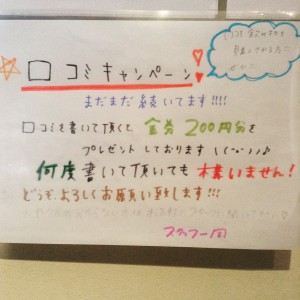 口コミキャンペーン!
まだまだ続いてます!!!!
口コミを書いて頂くと 金券200円分を
プレゼントしております\(^o^)♪
何度書いて頂いても 構いません!
どうぞ、よろしくお願い致します!!!
スタッフ一同